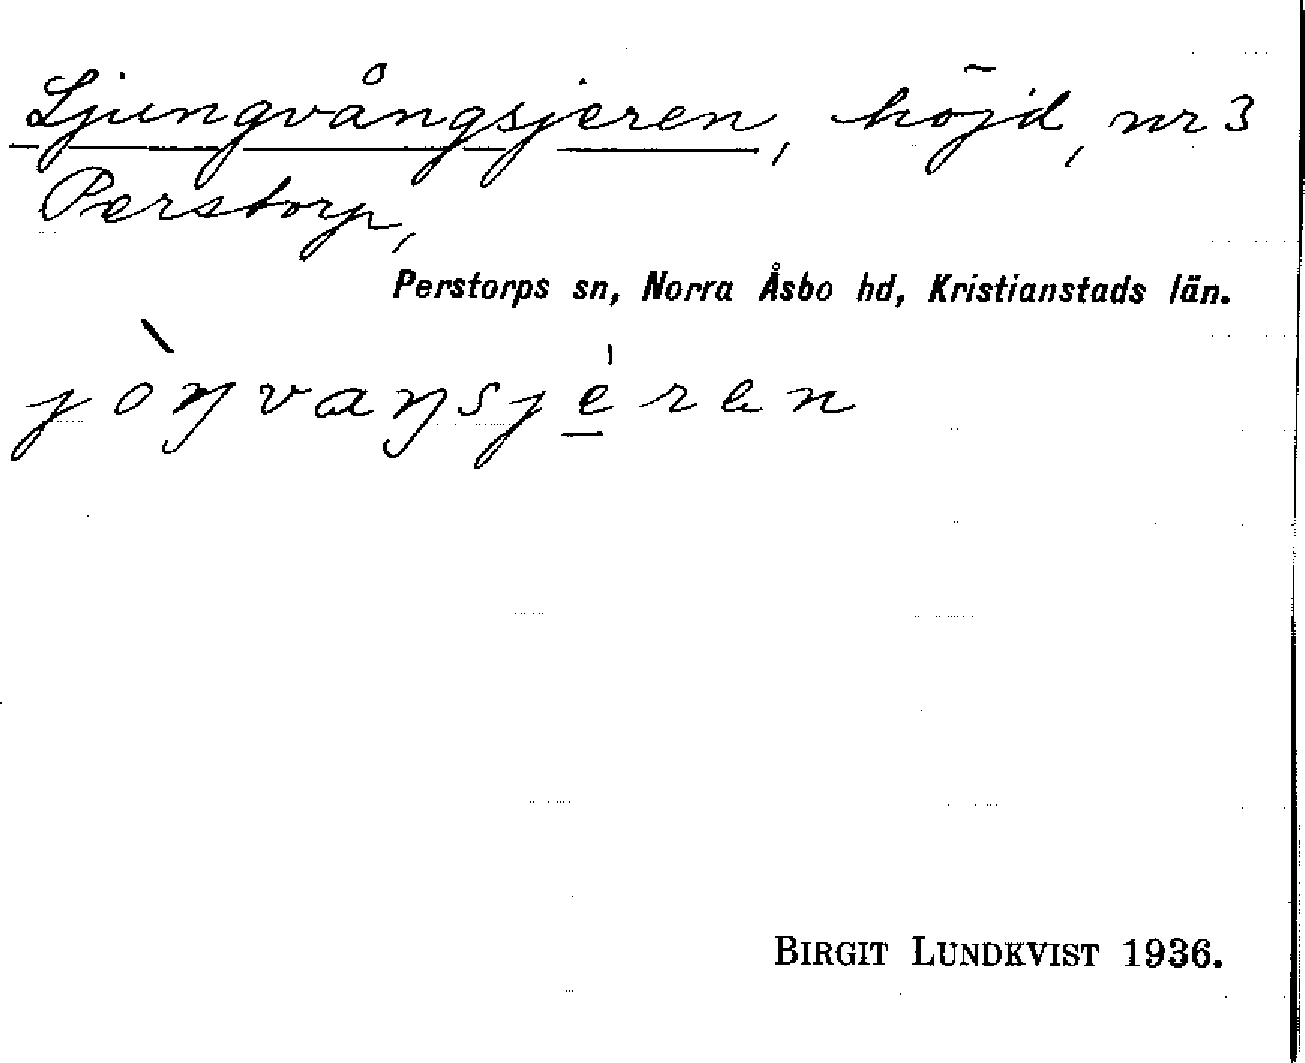 Ljungvångsjeren, höjd, nr 3
Perstorp,
Perstorps sn, Norra Åsbo hd, Kristianstads län.
jòŋvaŋsje̲̍ren
BIRGIT LUNDKVIST 1936.